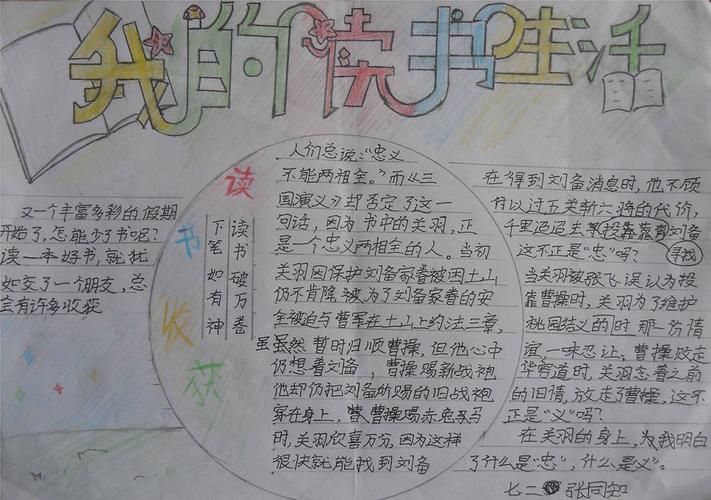 我的读书生活
又一个丰富多彩的假期
开始了,怎能少了书呢?
读一本好书,就犹
如交了一个朋友,总
会有许多收获
读
书
收
获
读书破万卷
下笔如有神
人们总说:“忠义
不能两相全。”而《三
国演义》却否定了这一
句话,因为书中的关羽,正
是一个忠义两相全的人。当初
关羽因保护刘备家眷被困土山
仍不肯降,被为了刘备家眷的安
全被迫与曹军在土山上约法三章,
虽虽然暂时归顺曹操,但他心中
仍想着刘备,曹操赐新战袍
他却仍把刘备所赐的旧战袍
穿在身上,曹操赐赤兔马
时,关羽欣喜万分,因为这样
很快就能找到刘备
在得到刘备消息时,他不顾
付以过五关斩六将的代价,
千里迢迢去寻找刘备
这不正是“忠”吗?
当关羽被张飞误认为投
靠曹操时,关羽为了维护
桃园结义的时那份情
谊,一味忍让;曹操败走
华容道时,关羽念着之前
的旧情,放走了曹操,这不
正是“义”吗?
在关羽的身上,为我明白
了什么是“忠”,什么是义。
七二 张同知